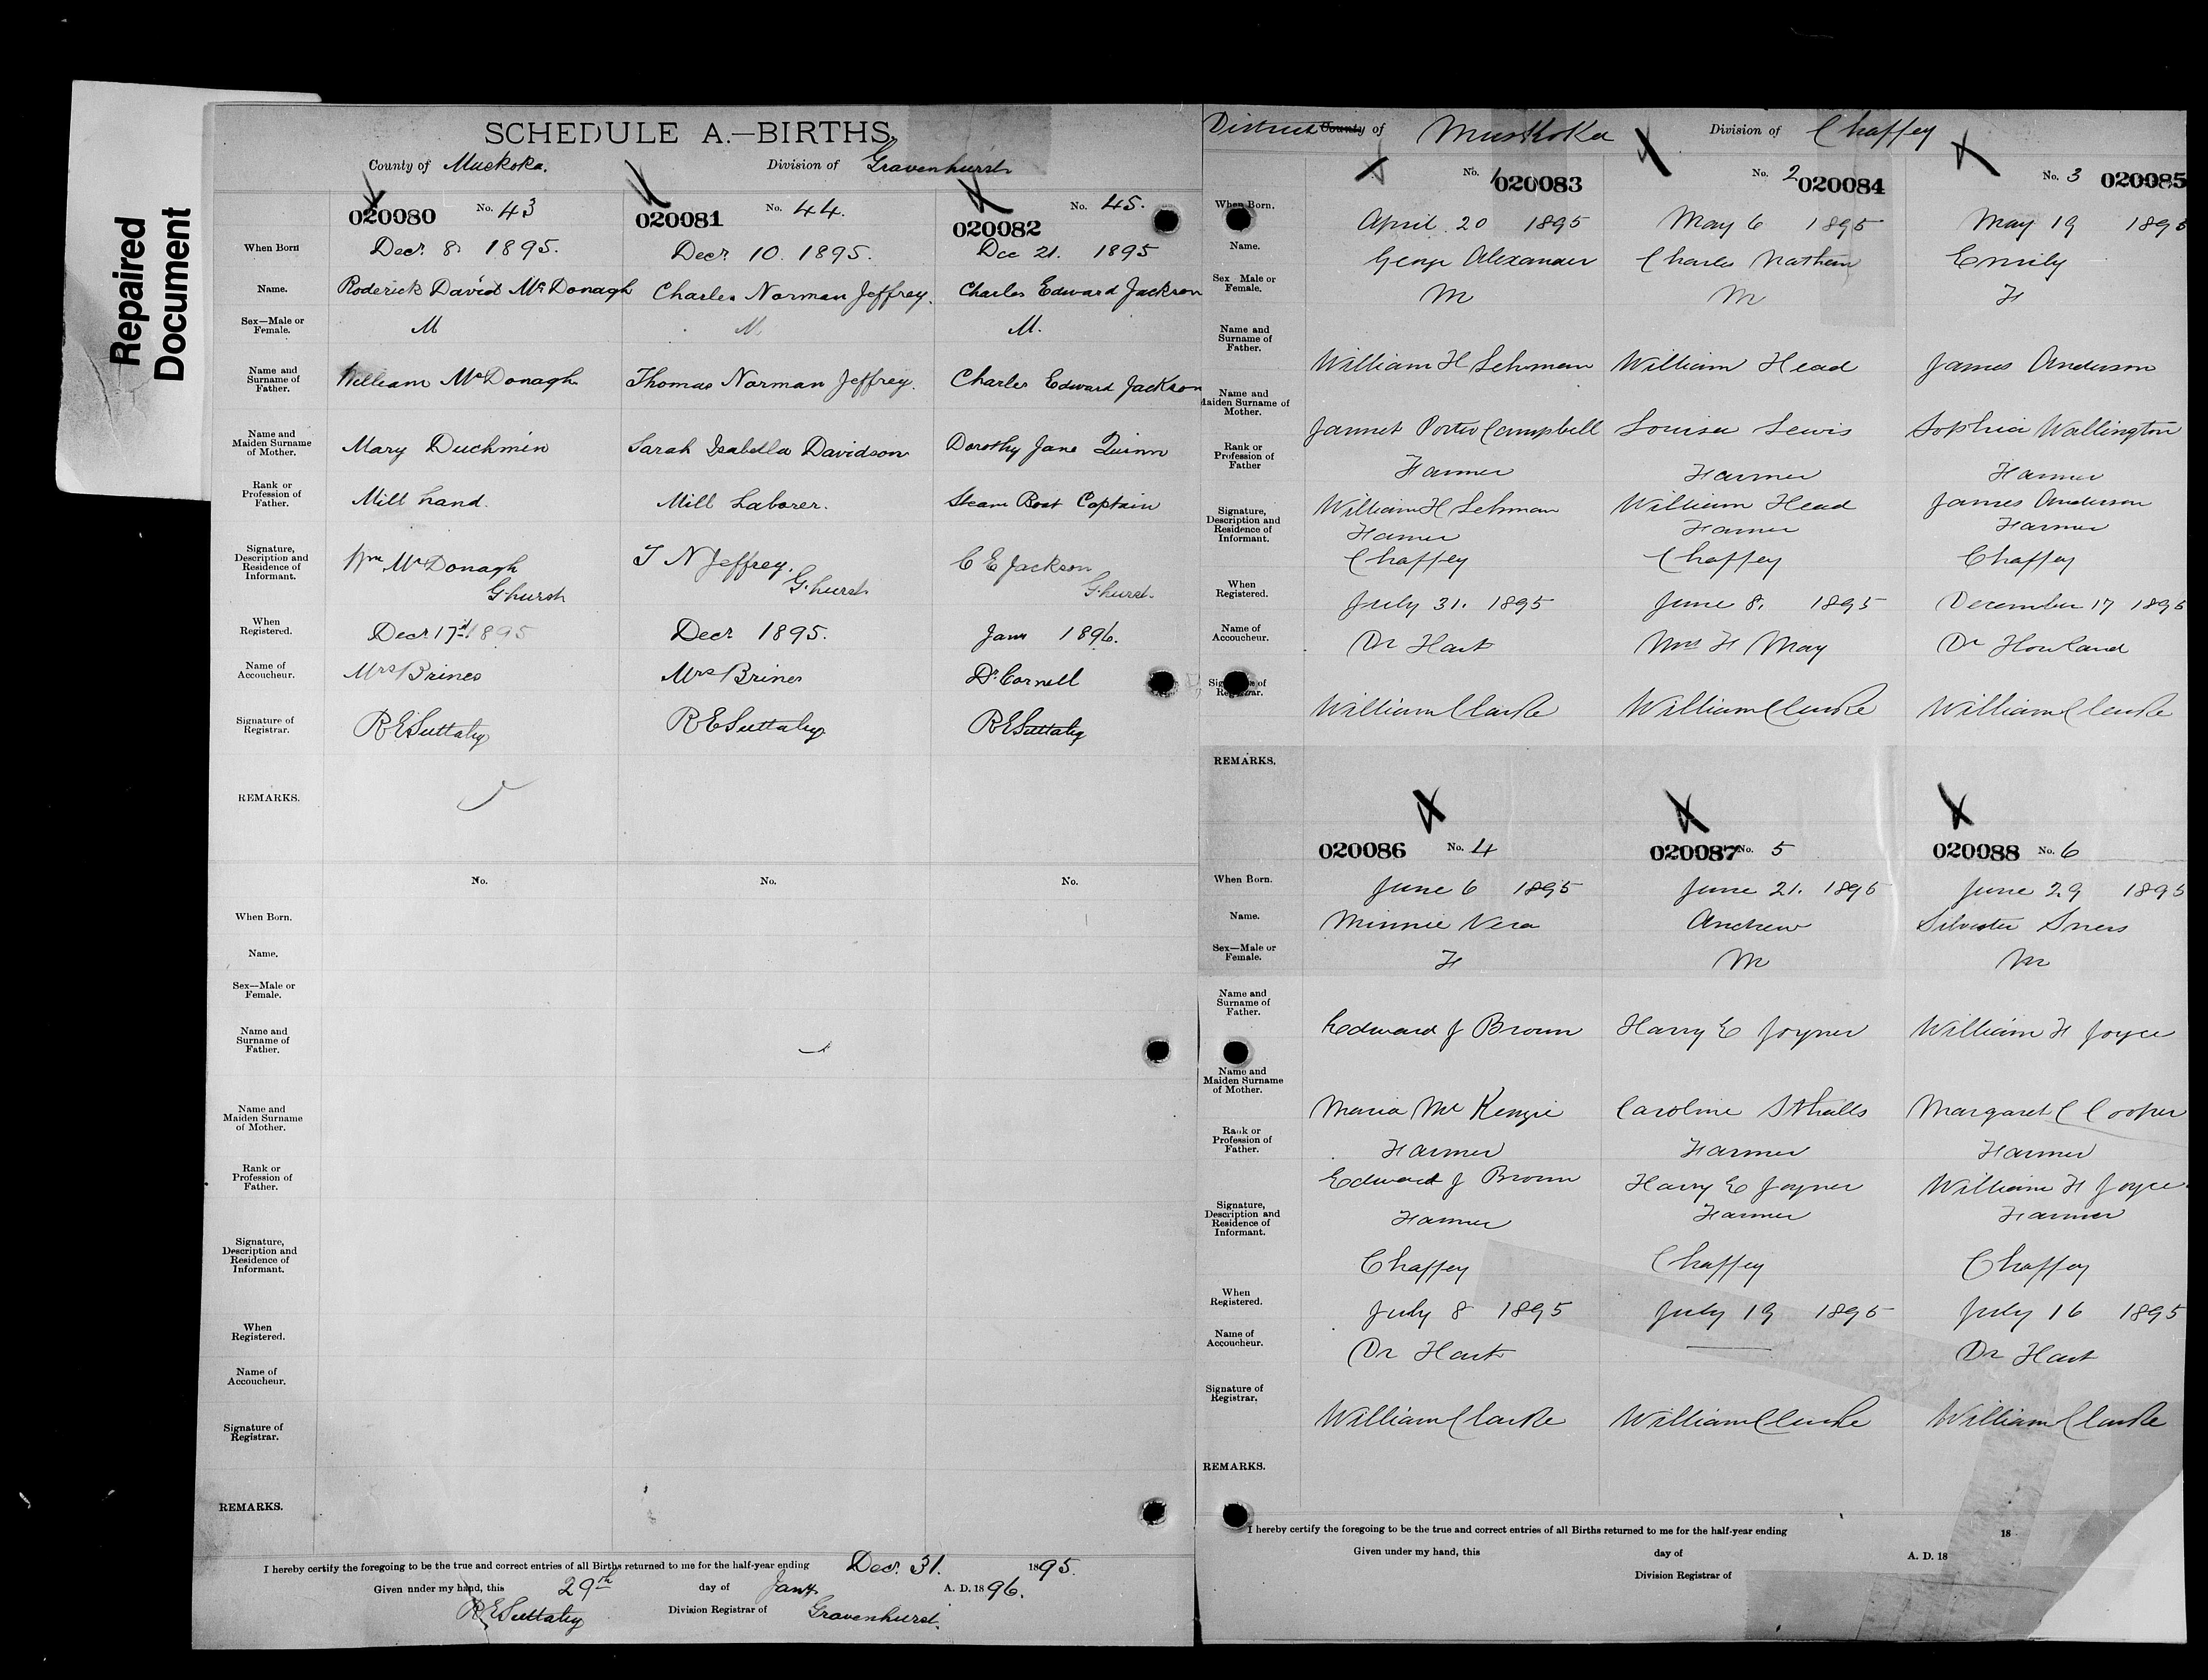 Repaired
Document
SCHEDULE A.—BIRTHS.
County of Muskoka. Division of Gravenhurst
020080 No. 43 020081 No. 44. 020082 No. 45.
When Born Decr. 8. 1895. Decr. 10. 1895. Dec 21. 1895
Name. Roderick David McDonagh Charles Norman Jeffrey. Charles Edward Jackson
Sex—Male or Female. M M. M.
Name and Surname of Father. William McDonagh Thomas Norman Jeffrey. Charles Edward Jackson
Name and Maiden Surname of Mother. Mary Duchmin Sarah Isabella Davidson Dorothy Jane Quinn
Rank or Profession of Father. Mill hand. Mill Laborer. Steam Boat Captain
Signature, Description and Residence of Informant. Wm McDonagh T N Jeffrey. C E Jackson
G.hurst G.hurst. G.hurst.
When Registered. Decr. 17th 1895 Decr 1895. Jany 1896.
Name of Accoucheur. Mrs Brines Mrs Brines Dr. Cornell
Signature of Registrar. R E Suttaby R E Suttaby R E Suttaby
REMARKS.
No. No. No.
When Born.
Name.
Sex—Male or Female.
Name and Surname of Father.
Name and Maiden Surname of Mother.
Rank or Profession of Father.
Signature, Description and Residence of Informant.
When Registered.
Name of Accoucheur.
Signature of Registrar.
REMARKS.
I hereby certify the foregoing to be the true and correct entries of all Births returned to me for the half-year ending Decr. 31. 1895.
Given under my hand, this 29th day of Jany. A. D. 1896.
R E Suttaby Division Registrar of Gravenhurst.
District County of Muskoka Division of Chaffey
No. 1 020083 No. 2 020084 No. 3 020085
When Born. April 20 1895 May 6 1895 May 19 1895
Name. George Alexander Charles Nathan Emily
Sex Male or Female. M M F
Name and Surname of Father. William H Lehman William Head James Anderson
Name and Maiden Surname of Mother. Jannet Porter Campbell Louisa Lewis Sophia Wallington
Rank or Profession of Father Farmer Farmer Farmer
Signature, Description and Residence of Informant. William H Lehman William Head James Anderson
Farmer Farmer Farmer
Chaffey Chaffey Chaffey
When Registered. July 31. 1895 June 8. 1895 December 17 1895
Name of Accoucheur. Dr Hart Mrs F May Dr Howland
Signature of Registrar. William Clarke William Clarke William Clarke
REMARKS.
020086 No. 4 020087 No. 5 020088 No. 6
When Born. June 6 1895 June 21. 1895 June 29 1895
Name. Minnie Vera Andrew Silvester
Sex—Male or Female. F M M
Name and Surname of Father. Edward J Brown Harry E Joyner William F Joyce
Name and Maiden Surname of Mother. Maria McKenzie Caroline Sthalls Margaret C Cooper
Rank or Profession of Father. Farmer Farmer Farmer
Signature, Description and Residence of Informant. Edward J Brown Harry E Joyner William F Joyce
Farmer Farmer Farmer
Chaffey Chaffey Chaffey
When Registered. July 8 1895 July 19 1895 July 16 1895
Name of Accoucheur. Dr Hart — Dr Hart
Signature of Registrar. William Clarke William Clarke William Clarke
REMARKS.
I hereby certify the foregoing to be the true and correct entries of all Births returned to me for the half-year ending 18
Given under my hand, this day of A. D. 18
Division Registrar of